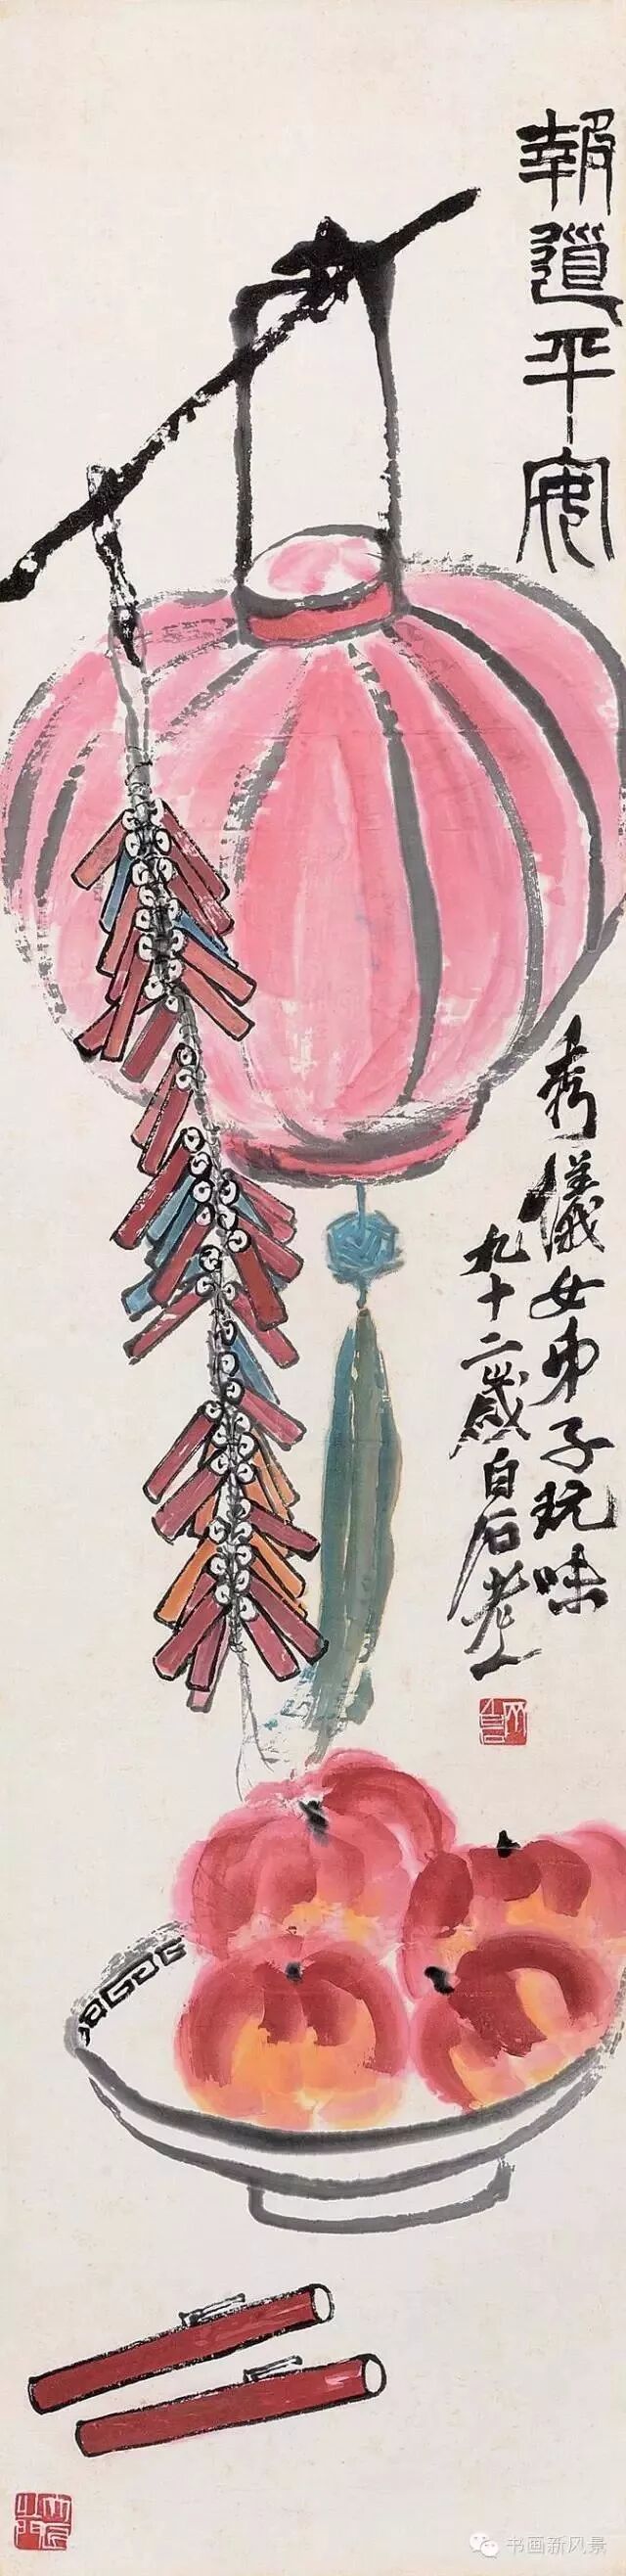 報道平安
秀儀女弟子玩味
九十二歲白石老人
木居士
书画新风景